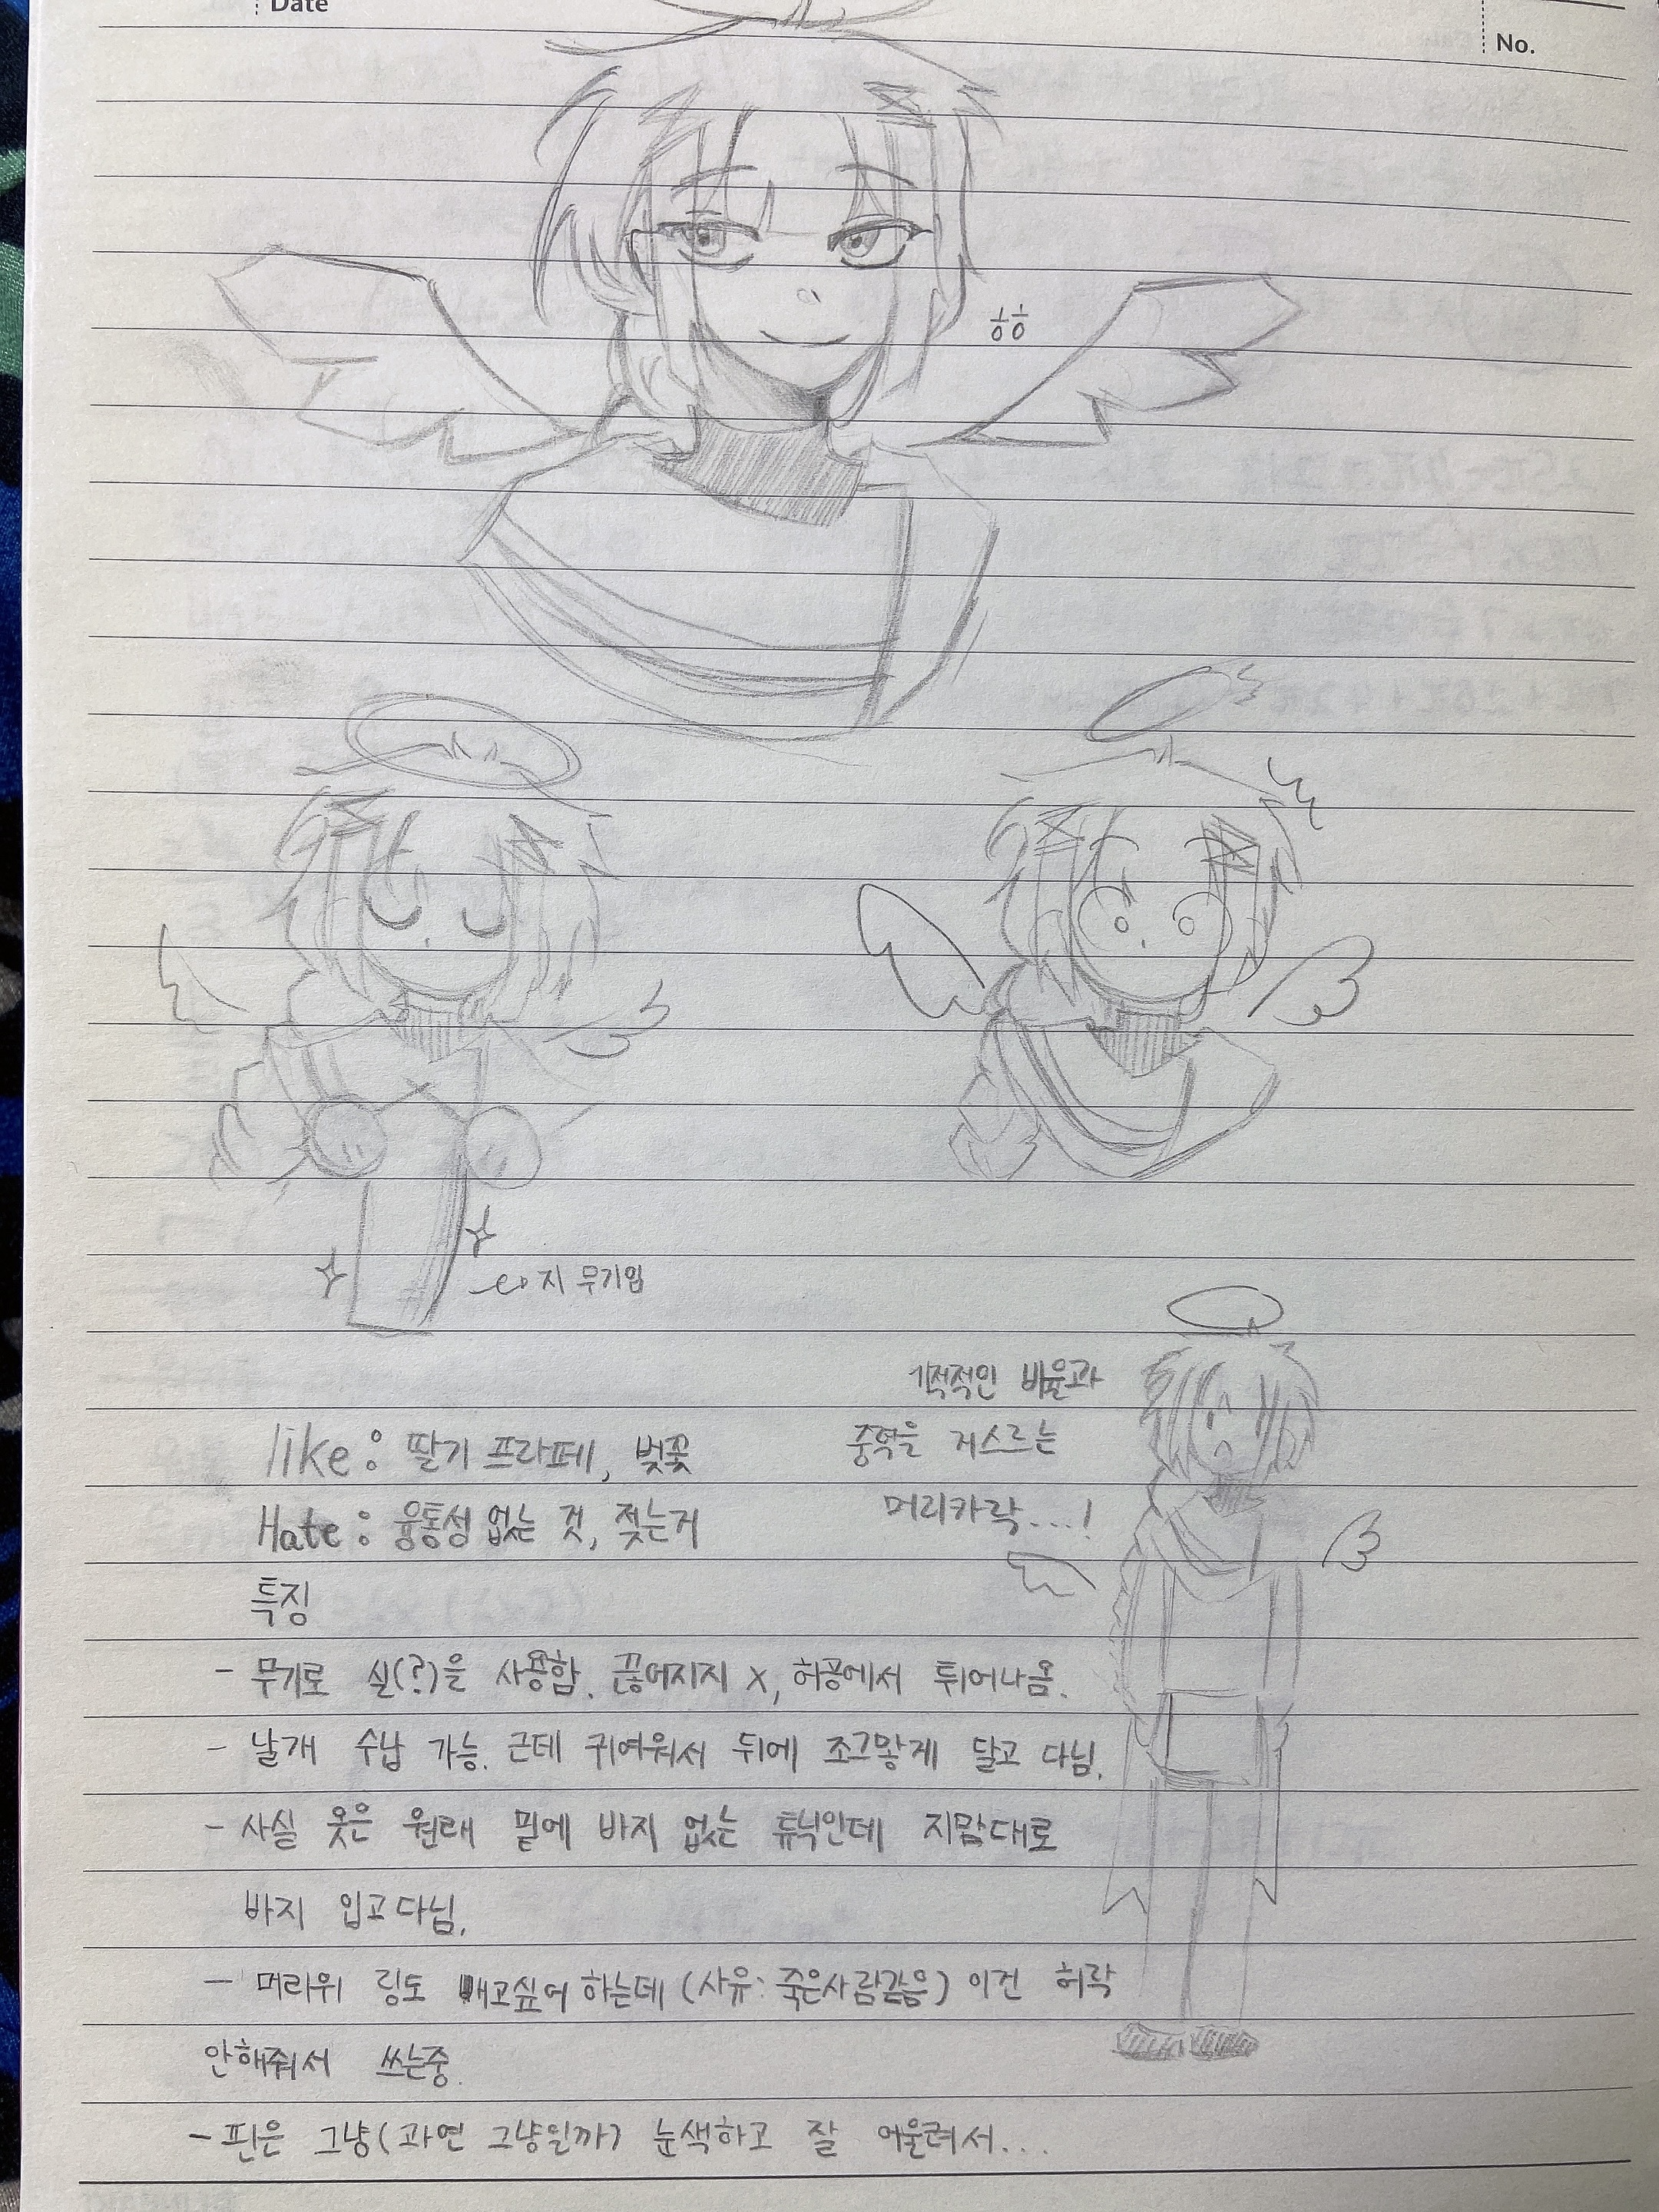 Date
No.
흐흐
지 무기임
기적적인 비율과
중력을 거스르는
머리카락...!
like: 딸기 프라페, 벚꽃
Hate: 융통성 없는 것, 젖는거
특징
- 무기로 실(?)을 사용함. 끊어지지 X, 허공에서 튀어나옴.
- 날개 수납 가능. 근데 귀여워서 뒤에 조그맣게 달고 다님.
- 사실 옷은 원래 밑에 바지 없는 튜닉인데 지맘대로
바지 입고다님.
- 머리위 링도 빼고싶어 하는데 (사유: 죽은사람같음) 이건 허락
안해줘서 쓰는중.
- 핀은 그냥(과연 그냥일까) 눈색하고 잘 어울려서...